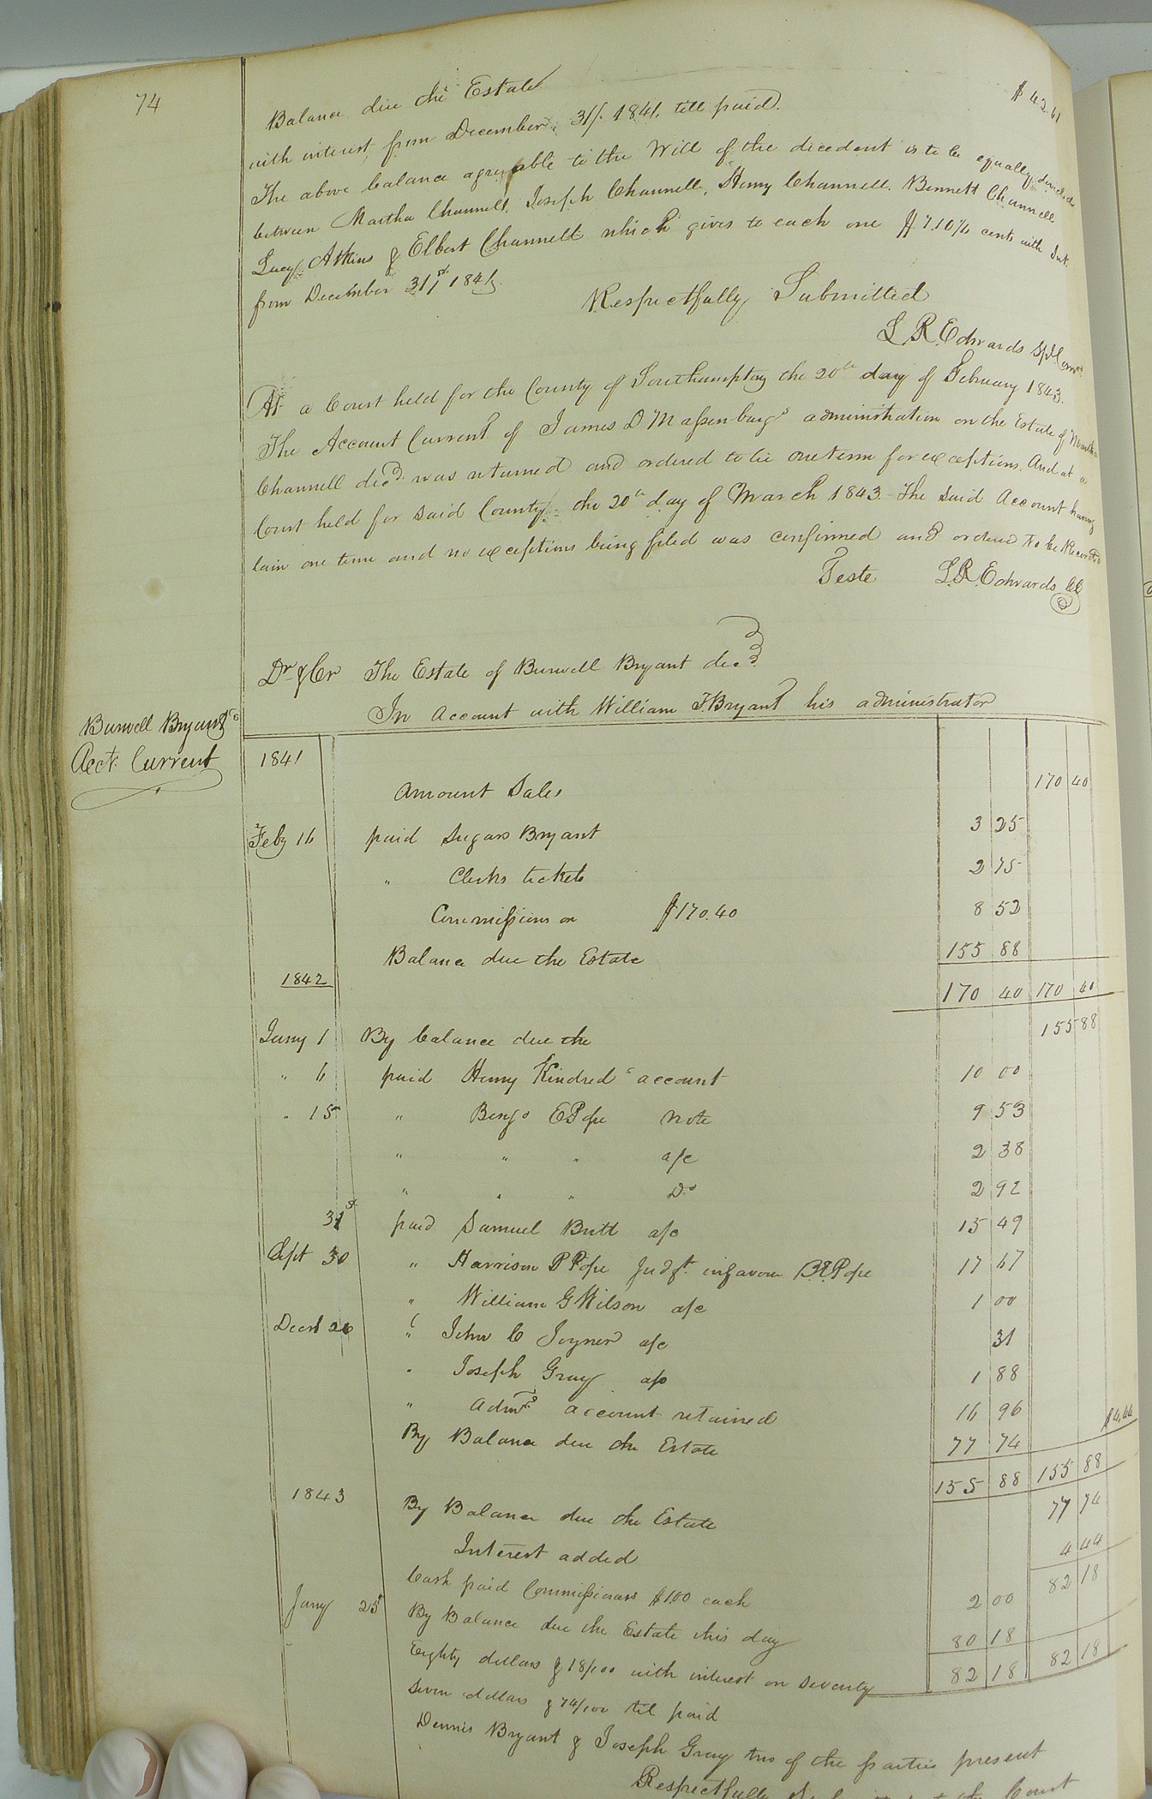 74
Balance due the Estate $42.61
with interest from December 31st 1841 till paid.
The above balance agreeable to the Will of the decedent is to be equally divided
between Martha Channell, Joseph Channell, Henry Channell, Bennett Channell
Lucy Atkins & Elbert Channell which gives to each one $7.10 1/6 cents with Int.
from December 31st 1841.
Respectfully Submitted
L. R. Edwards Spl Comr
At a Court held for the County of Southampton the 20th day of February 1843.
The Account Current of James D Massenburg's administration on the Estate of
Channell decd. was returned and ordered to lie one term for exceptions. And at a
Court held for said County the 20th day of March 1843 The said Account having
lain one term and no exceptions being filed was confirmed and ordered to be Recorded
Teste L. R. Edwards CC
Dr & Cr The Estate of Burwell Bryant decd.
In Account with William T. Bryant his administrator
Burwell Bryant's
Acct. Current
1841
Amount Sales 170 40
Feby 16 paid Sugars Bryant 3 25
" Clerks tickets 2 75
Commissions on $170.40 8 52
Balance due the Estate 155 88
1842 170 40 170 40
Jany 1 By balance due the 155 88
" 6 paid Henry Kindred's account 10 00
" 15 " Benjn E Pope note 9 53
" " " a/c 2 38
" " " Do 2 92
31st paid Samuel Butt a/c 15 49
Sept 30 " Harrison P Pope Judgt. in favour B. E. Pope 17 67
" William G Wilson a/c 1 00
Decr 26 " John C Joyner a/c 31
" Joseph Gray a/c 1 88
" Admrs account retained 16 96
By Balance due the Estate 77 74 $4.44
155 88 155 88
1843 By Balance due the Estate 77 74
Interest added 4 44
82 18
Cash paid Commissioners $1.00 each 2 00
Jany 25 By Balance due the Estate this day 80 18
Eighty dollars & 18/100 with interest on seventy 82 18 82 18
seven dollars & 74/100 til paid
Dennis Bryant & Joseph Gray two of the parties present
Respectfully the Court